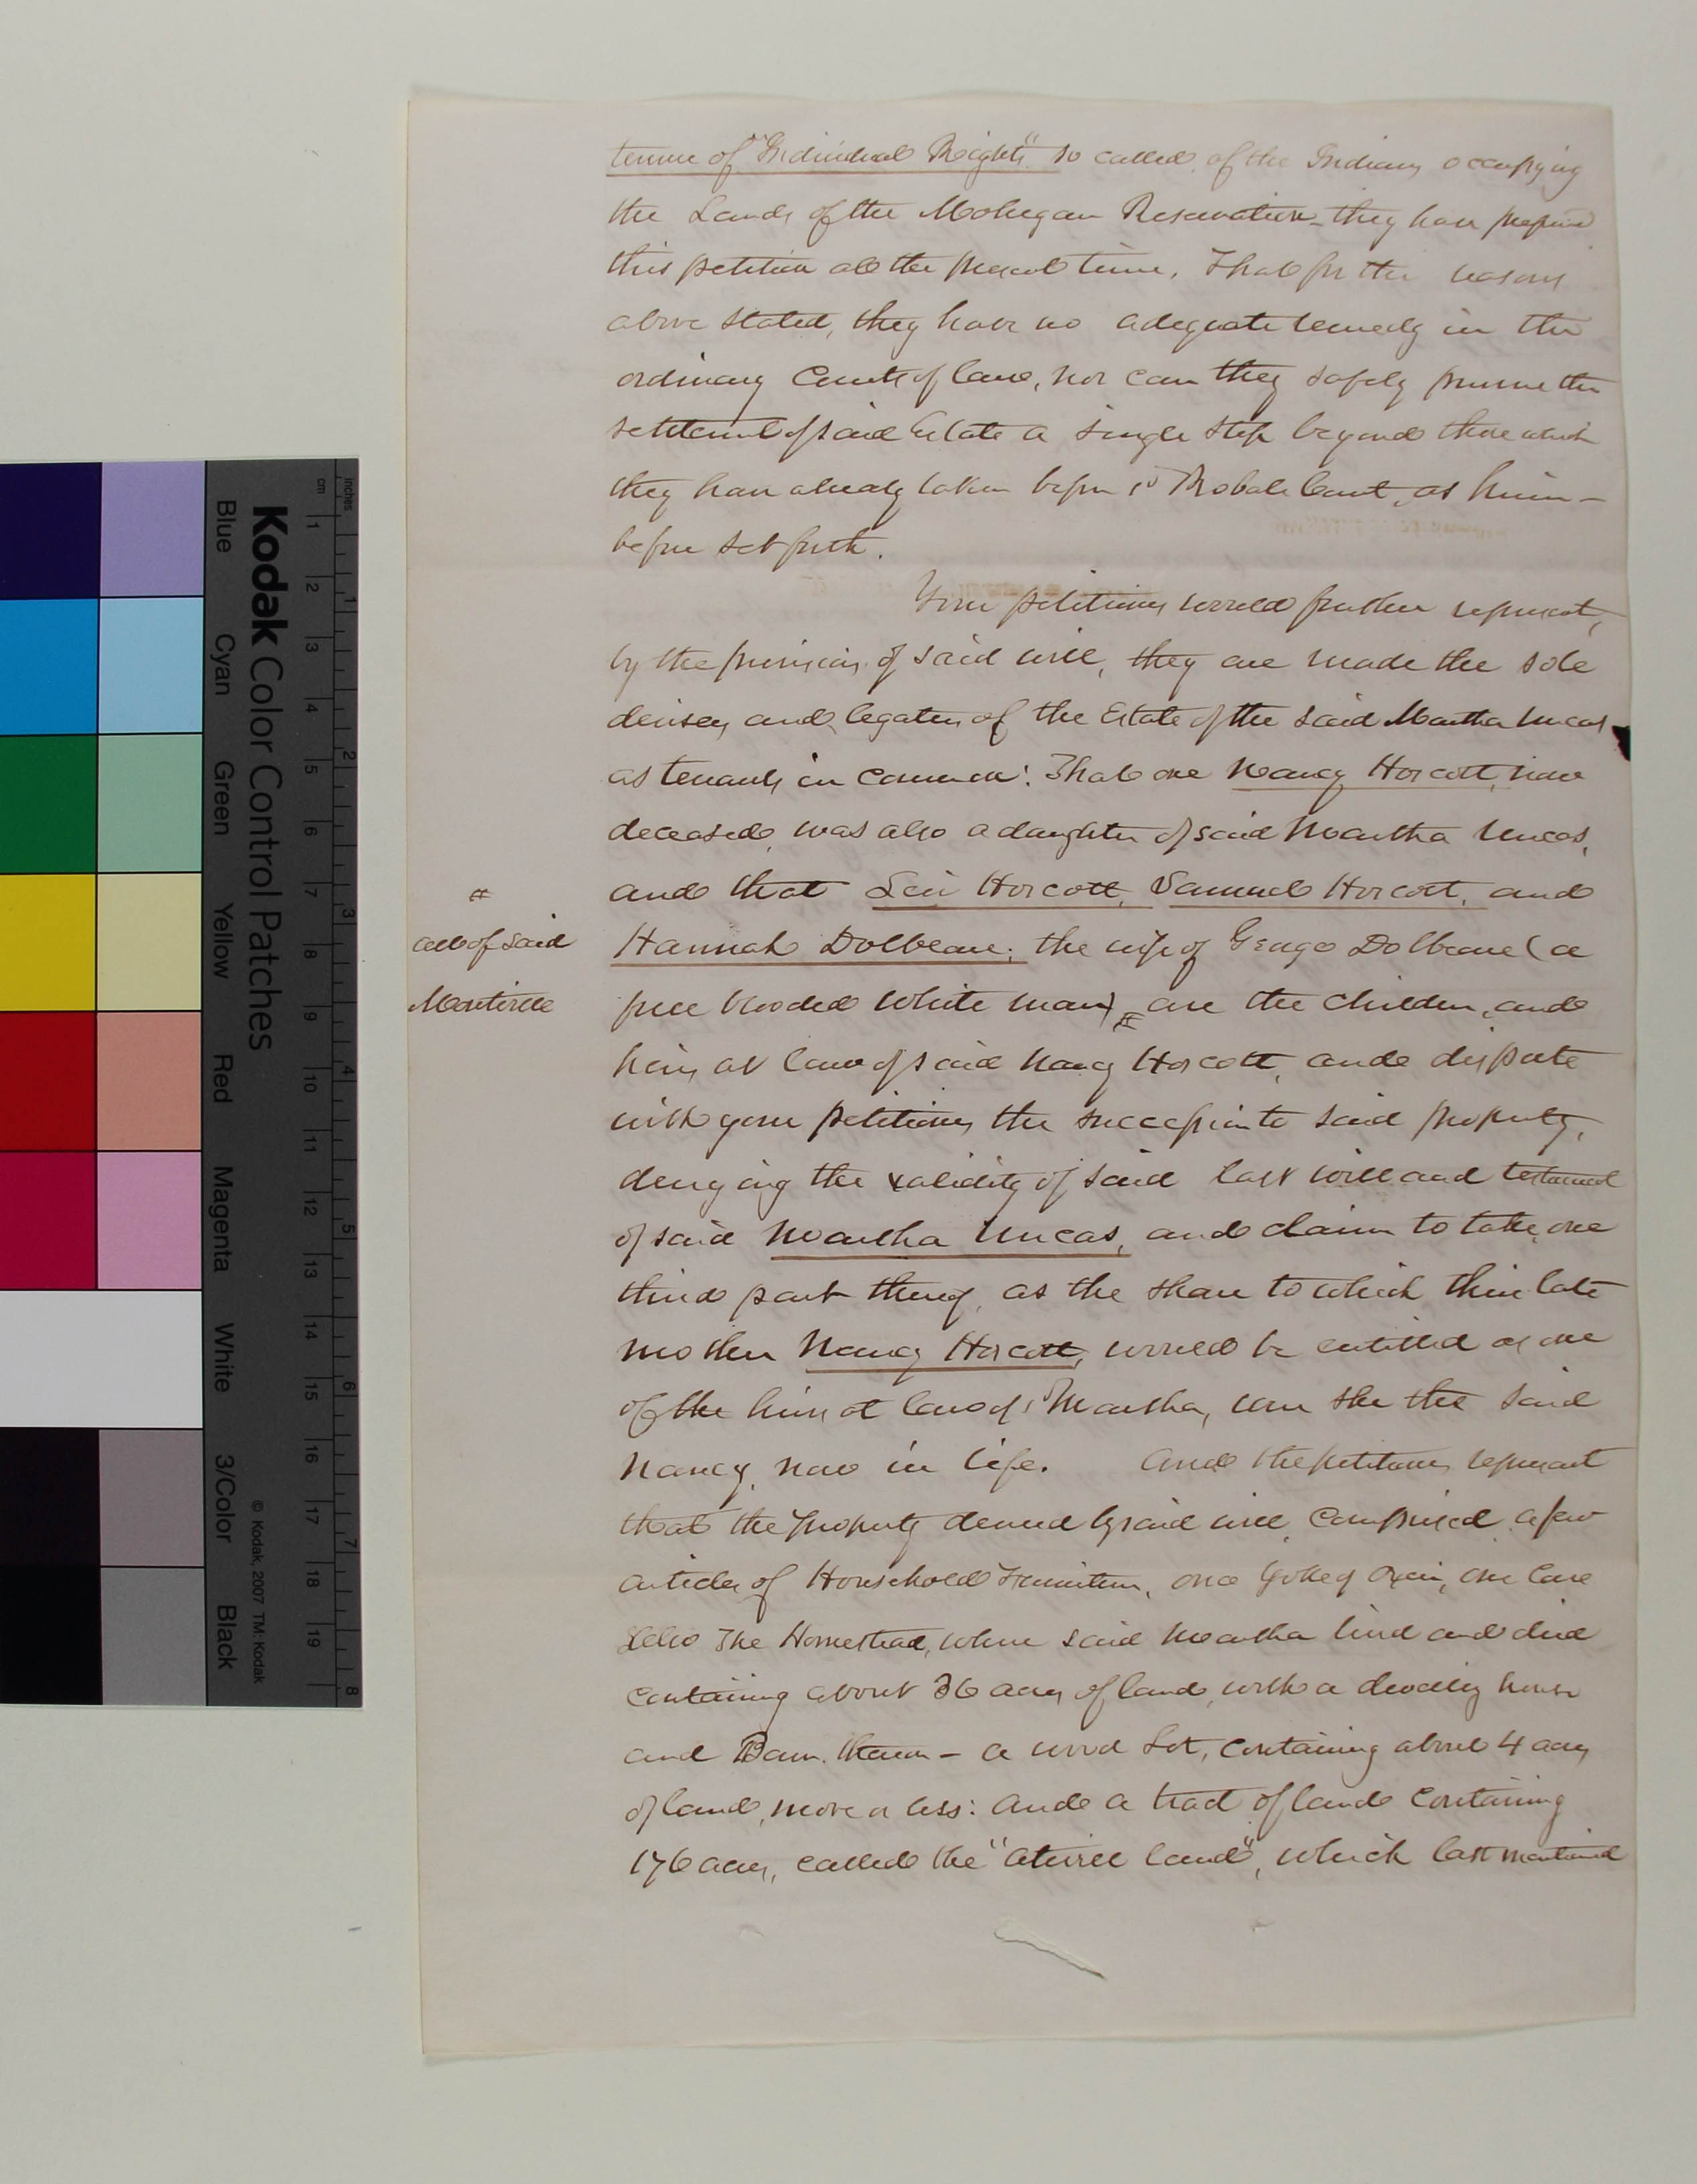 tenure of "Individual Rights" so called, of the Indians occupying
the Lands of the Mohegan Reservation – they have prepared
this petition at the present time. That for the reasons
above stated, they have no adequate remedy in the
ordinary Courts of law, nor can they safely pursue the
settlement of said Estate a single step beyond those which
they have already taken before sd Probate Court, as herein-
before set forth.
Your petitioners would further represent,
by the provisions of said will, they are made the sole
devisees and legatees of the Estate of the said Martha Uncas
as tenants in common: That one Nancy Horcott, now
deceased, was also a daughter of said Martha Uncas,
and that Levi Horcott, Samuel Horcott, and
#
all of said
Montville
Hannah Dolbeare, the wife of George Dolbeare (a
free blooded white man) # are the children, and
heirs at law of said Nancy Horcott, and dispute
with your petitioners the succession to said property,
denying the validity of said last will and testament
of said Martha Uncas, and claim to take one
third part thereof, as the share to which their late
mother Nancy Horcott, would be entitled as one
of the heirs at law of sd Martha, were she the said
Nancy, now in life. And the petitioners represent
that the property devised by said will, comprised a few
articles of Household Furniture, one yoke of Oxen, one Cow
Also The Homestead, where said Martha lived and died
containing about 36 acres of land, with a dwelling house
and Barn thereon – a wood Lot, containing about 4 acres
of land, more or less: and a tract of land containing
176 acres, called the "Atwell land", which last mentioned
Kodak Color Control Patches
© Kodak, 2007 TM: Kodak
Blue Cyan Green Yellow Red Magenta White 3/Color Black
inches 1 2 3 4 5 6 7 8
cm 1 2 3 4 5 6 7 8 9 10 11 12 13 14 15 16 17 18 19